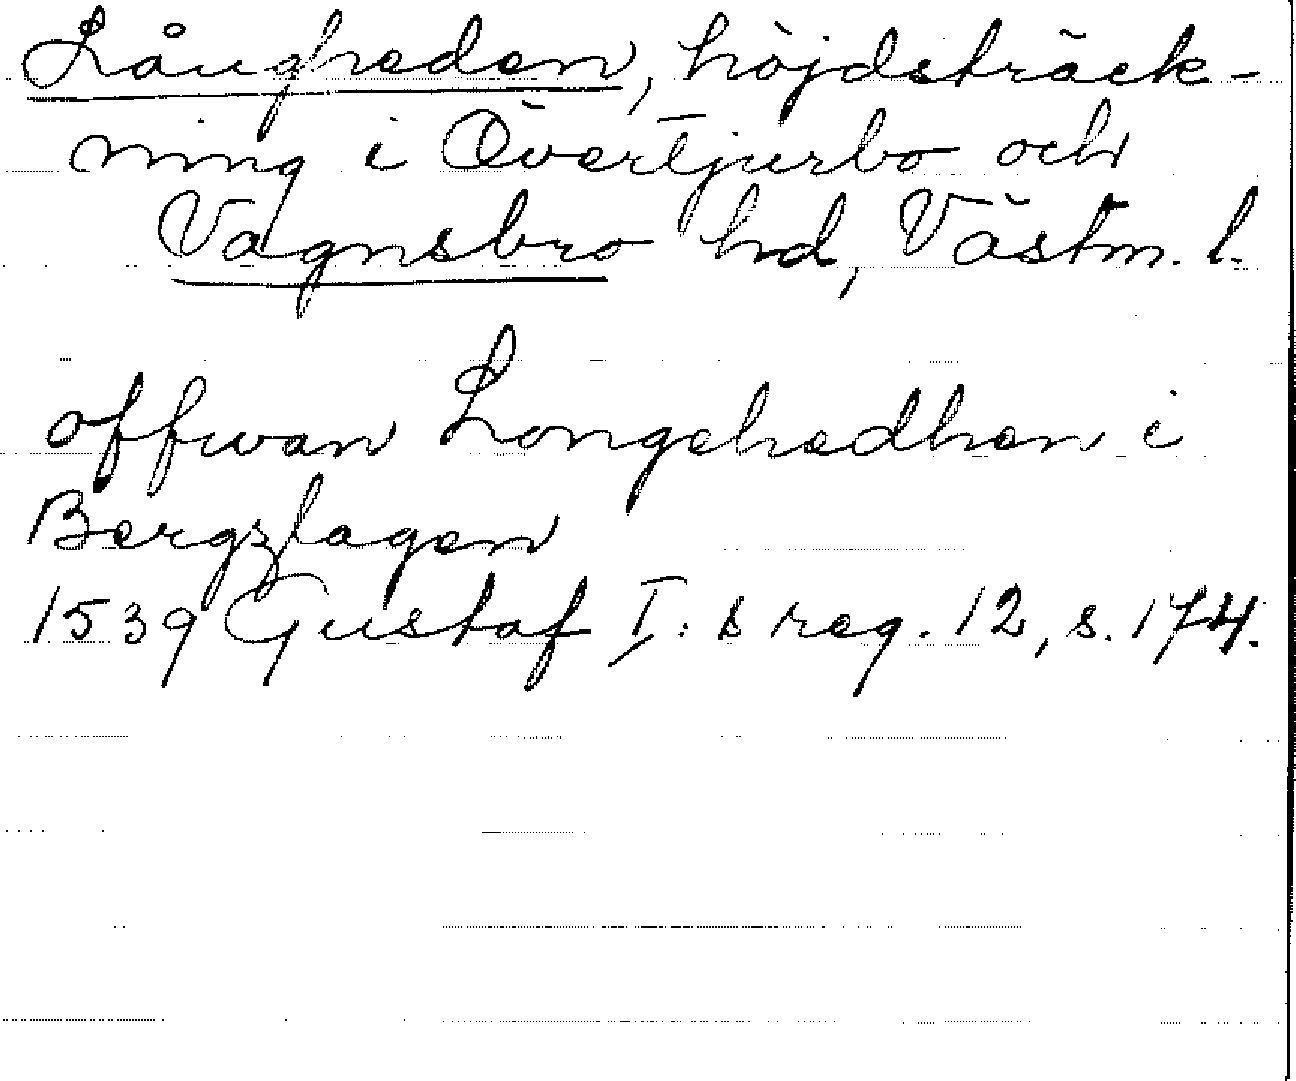 Långheden, höjdsträck-
ning i Övertjurbo och
Vagnsbro hd, Västm. l.
offwan Longehedhen i
Bergzlagen
1539 Gustaf I:s reg. 12, s. 174.